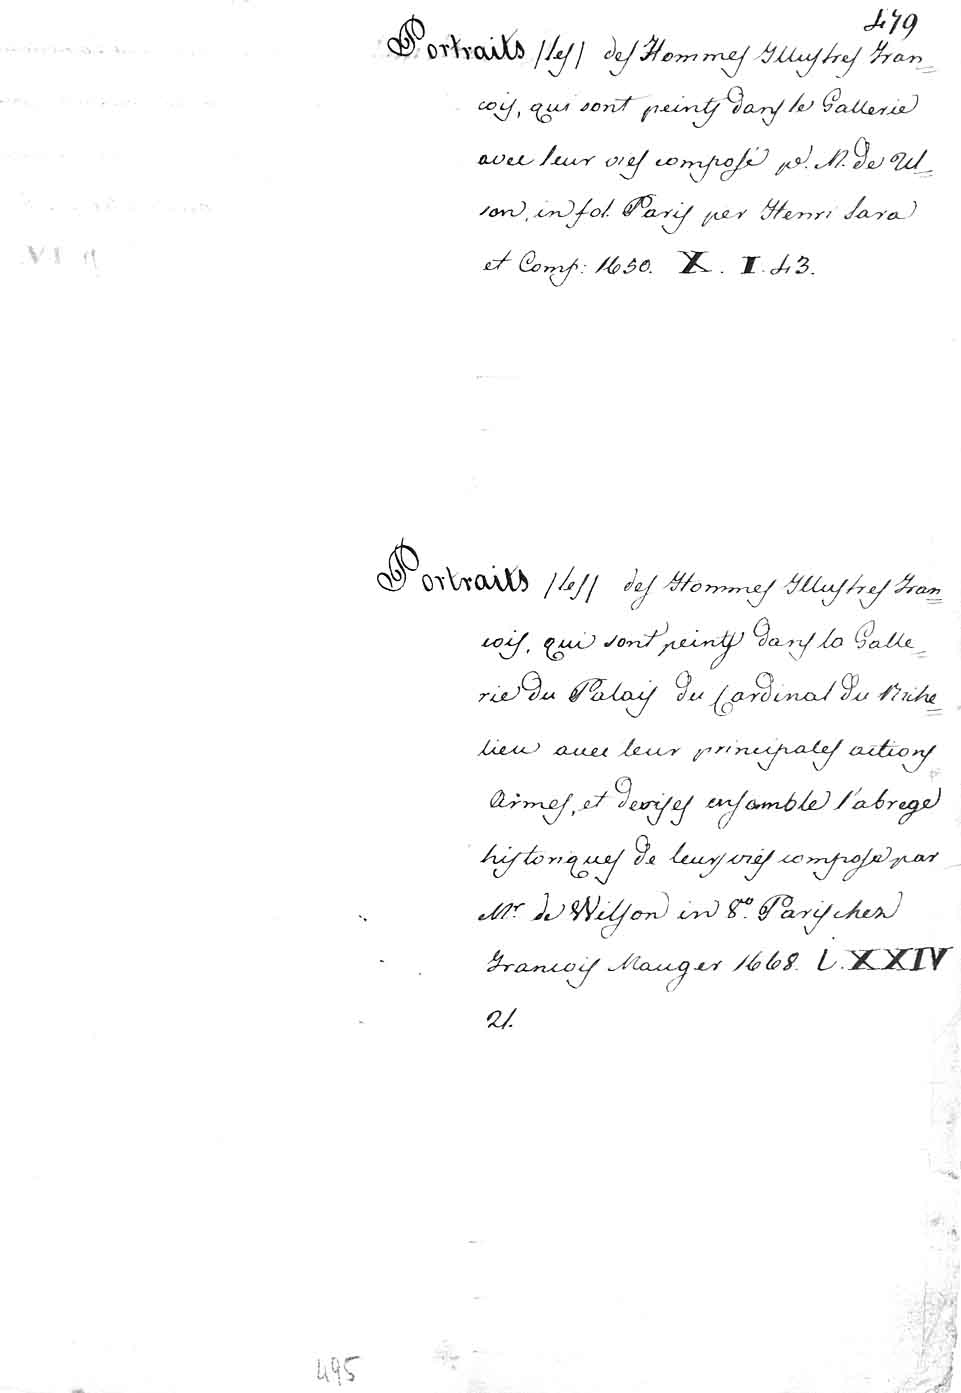 479
Portraits /les/ des Hommes Illustres Fran=
cois, qui sont peints dans le Gallerie
avec leur vies composé p. M. de Ul=
son, in fol. Paris per Henri Sara
et Comp: 1650. X. I. 43.
Portraits /les/ des Hommes Illustres Fran=
cois, qui sont peints dans la Galle=
rie du Palais du Cardinal du Riche=
lieu avec leur principales actions
Armes, et devises ensamble l'abregé
historiques de leurs vies compose par
Mr. de Wilson in 8vo. Paris chez
Francois Mauger 1668. L. XXIV
21.
495